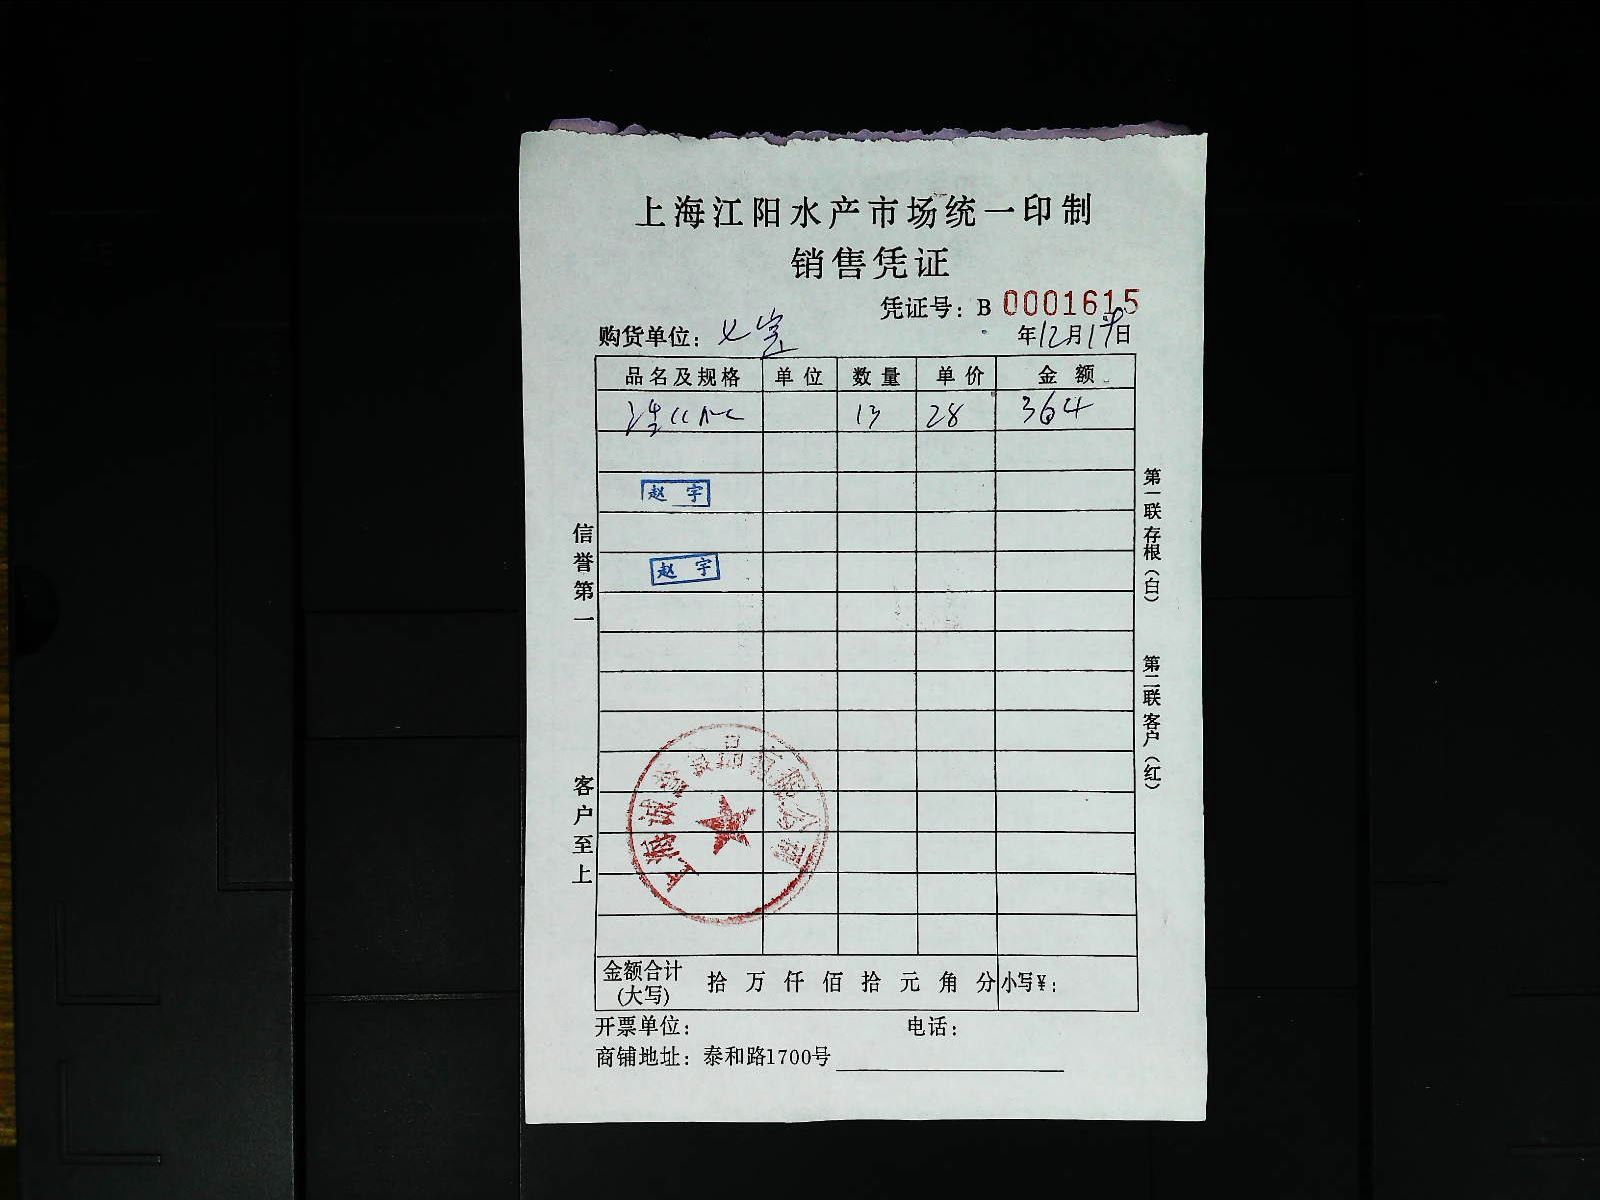 上海江阳水产市场统一印制
销售凭证
凭证号：B 0001615
购货单位：七宝 年12月19日
品名及规格 单位 数量 单价 金额
13 28 364
赵宇
赵宇
信誉第一
客户至上
第一联存根（白）
第二联客户（红）
上海诚 食品有限公司
金额合计(大写) 拾 万 仟 佰 拾 元 角 分 小写¥：
开票单位： 电话：
商铺地址：泰和路1700号